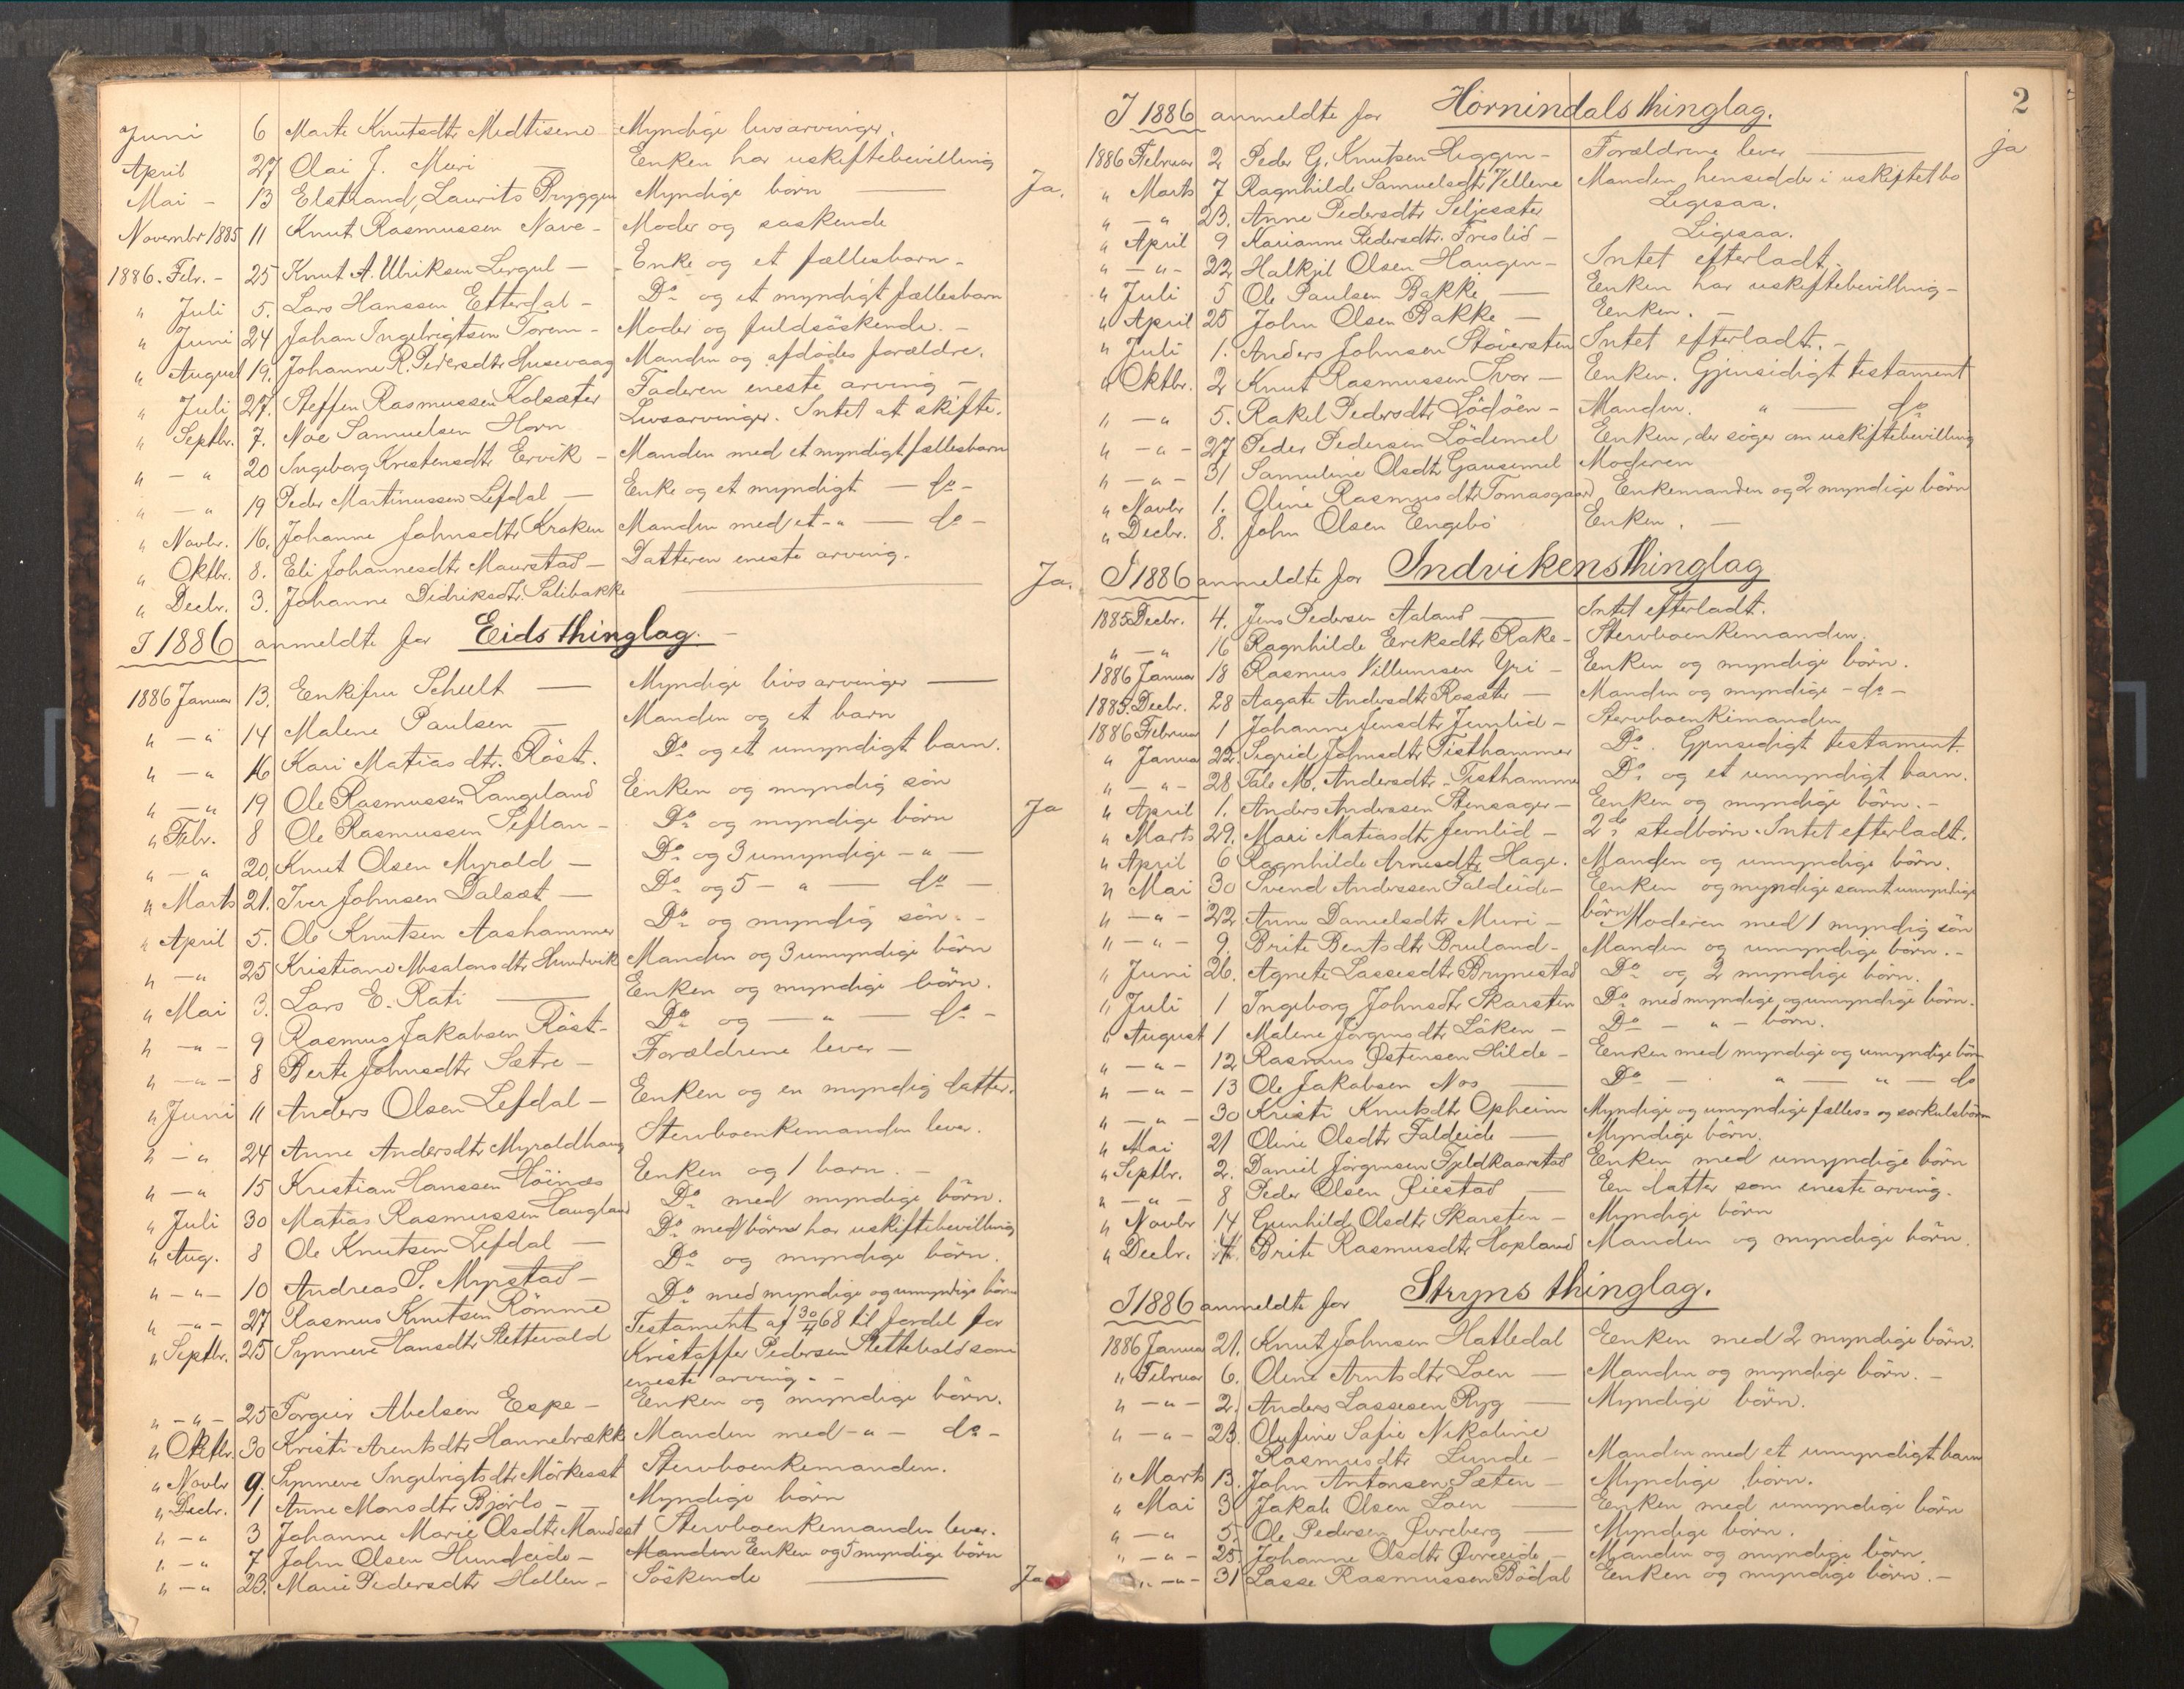 Juni 6 Marte Knutsdtr. Midtisene Myndige livsarvinger.
April 27 Olai J. Muri — Enken har uskiftebevilling
Mai - 13 Elstrand, Laurits Bryggen Myndige börn — Ja.
Novembr 1885 11 Knut Rasmussen Nave - Moder og søskende
1886. Febr. - 25 Knut A. Ulriksen Lergul — Enke og et fællesbarn -
" Juli 5. Lars Hanssen Etterdal - Do og et myndigt fællesbarn
" Juni 24 Johan Ingebrigtsen Torem - Moder og fuldsöskende. -
" August 19. Johanne R. Pedersdtr Husevaag Manden og afdödes forældre.
" Juli 27. Steffen Rasmussen Kolsæter Faderen eneste arving -
" Septbr. 7. Noe Samuelsen Horn Livsarvinger. Intet at skifte.
" — " 20 Ingeborg Kristensdtr Ervik - Manden med et myndigt fællesbarn
" — " 19 Peder Martinussen Lefdal — Enke og et myndigt — do -
" Novbr. 16. Johanne Johnsdtr Kraken Manden med et - " — do -
" Oktbr. 8. Eli Johannesdtr Maurstad - Datteren eneste arving.
" Decbr. 3. Johanne Didriksdtr. Salibakke — Ja.
I 1886 anmeldte for Eids thinglag. -
1886 Januar 13. Enkefru Schult — Myndige livsarvinger —
" — " 14 Malene Paulsen — Manden og et barn
" — " 16 Kari Matiasdtr. Röst. Do og et umyndigt barn.
" — " 19 Ole Rasmussen Langeland Enken og myndig sön
" Febr. 8 Ole Rasmussen Seflan - Do og myndige börn Ja
" — " 20. Knut Olsen Myrold — Do og 3 umyndige - " —
" Marts 21. Iver Johnsen Dalsæt — Do og 5 - " — do —
" April 5. Ole Knutsen Aashammer Do og myndig sön. -
" — " 25 Kristiane Absalonsdtr Hundvik Manden og 3 umyndige börn
" Mai 3. Lars E. Rati — Enken og myndige börn.
" — " - 9 Rasmus Jakobsen Röst - Do og — " — do -
" — " - 8 Berte Johnsdtr Sætre - Forældrene lever —
" Juni 11 Anders Olsen Lefdal - Enken og en myndig datter.
" — " 24 Anne Andersdtr Myroldhaug Stervboenkemanden lever.
" — " 15 Kristian Hanssen Höinæs Enken og 1 barn. -
" Juli 30 Matias Rasmussen Haugland Do med myndige börn.
" Aug. 8 Ole Knutsen Lefdal — Do med börn har uskiftebevilling
" — " — 10 Andreas S. Myrstad - Do og myndige börn.
" — " - 27 Rasmus Knutsen Römme Do med myndige og umyndige börn
" Septbr. 25 Synneve Hansdtr Slettevold Testament af 30/4 68 til fordel for
Kristoffer Pedersen Slettebold som
eneste arving. -
" — " - 25 Torgeir Abelsen Espe - Enken og myndige börn.
" Oktbr. 30 Kristi Arentsdtr Hannebrække Manden med - " - do -
" Novbr 9. Synneve Ingebrigtsdtr Mörkesæt Stervboenkemanden.
" Decbr. 1 Anne Monsdtr Bjørlo - Myndige börn
" — " 3 Johanne Marie Olsdtr Mandsæt Stervboenkemanden lever.
" — " 7 John Olsen Hundeide - Manden Enken og 5 myndige börn
" — " 23. Marie Pedersdtr Hollen - Söskende — Ja
2
I 1886 anmeldte for Hornindals thinglag.
1886 Februar 2 Peder G. Knutsen Heggen - Forældrene lever — ja
" Marts 7 Ragnhilde Samuelsdtr Vellene Manden hensidder i uskiftet bo
" — " 23. Anne Pedersdtr Seljesæter Ligesaa.
" April 9 Karianne Pedersdtr. Freslid - Ligesaa.
" — " - 22 Halkjel Olsen Haugen - Intet efterladt.
" Juli 5 Ole Paulsen Bakke — Enken har uskiftebevilling -
" April 25 John Olsen Bakke — Enken. -
" Juli 1. Anders Johnsen Stöversten Intet efterladt. -
" Oktbr. 2 Knut Rasmussen Svor — Enken. Gjensidigt testament
" — " 5. Rakel Pedersdtr Lödöen - Manden. " — do
" — " - 27 Peder Pedersen Lödemel Enken, der söger om uskiftebevilling
" — " - 31 Samuline Olsdtr Gausemel Moderen
" Novbr 1. Oline Rasmusdtr Tomasgaard Enkemanden og 2 myndige börn
" Decbr. 8. John Olsen Engebö Enken. —
I 1886 anmeldte for Indvikens thinglag
1885 Decbr. 4. Jens Pedersen Aaland — Intet efterladt.
" — " 16 Ragnhilde Eriksdtr Rake - Stervboenkemanden.
1886 Januar 18 Rasmus Villumsen Yri - Enken og myndige börn.
1885. Decbr. 28 Aagate Andersdtr Rosæter — Manden og myndige - do -
1886 Februar 1 Johanne Jensdtr Jemlid - Stervboenkemanden
" Januar 22. Sigrid Johnsdtr Tisthammer Do. Gjensidigt testament.
" — " - 28 Tale M. Andersdtr. Tisthammer Do og et umyndigt barn.
" April 1. Anders Anderssen Stensager - Enken og myndige börn. -
" Marts 29. Mari Matiasdtr Jevnlid - 2de stedbörn. Intet efterladt.
" April 6 Ragnhilde Arnesdtr Hage. Manden og umyndige börn.
" Mai 30 Svend Anderssen Faldeide - Enken og myndige samt umyndige
" — " - 22 Anne Danielsdtr Muri - börn Moderen med 1 myndig sön
" — " - 9. Brite Bentsdtr Bruland - Manden og umyndige börn. -
" Juni 26. Agnete Lassesdtr Brynestad Do og 2 myndige börn.
" Juli 1 Ingeborg Johnsdtr Skarsten Do med myndige og umyndige börn.
" August 1 Malene Jörgensdtr Löken - Do - " - börn.
" — " - 12 Rasmus Østensen Hilde - Enken med myndige og umyndige börn
" — " - 13 Ole Jakobsen Nos — Do — " — " — do
" — " - 30 Kristi Knutsdtr Opheim Myndige og umyndige fælles- og særkulsbörn
" Mai 21 Oline Olsdtr Faldeide — Myndige börn.
" Septbr. 2. Daniel Jörgensen Fjeldkaarstad Enken med umyndige börn
" — " - 8 Peder Olsen Øiestad — En datter som eneste arving.
" Novbr 14 Gunhild Olsdtr Skarsten - Myndige börn
" Decbr. Brite Rasmusdtr Hopland Manden og myndige börn.
I 1886 anmeldte for Stryns thinglag.
1886 Januar 21. Knut Johnsen Hatledal Enken med 2 myndige börn.
" Februar 6. Oline Arntsdtr Loen — Manden og myndige börn. -
" — " - 2. Anders Lassesen Ryg — Myndige börn.
" — " - 23. Olufine Sofie Nikoline
Rasmusdtr Lunde - Manden med et umyndigt barn
" Marts 13. John Antonsen Sæten - Myndige börn.
" Mai 3 Jakob Olsen Loen — Enken med umyndige börn
" — " 5. Ole Pedersen Øvreberg — Myndige börn.
" — " - 25. Johanne Olsdtr Øvreeide - Manden og myndige börn.
" — " - 31 Lasse Rasmussen Bödal Enken og myndige börn. -